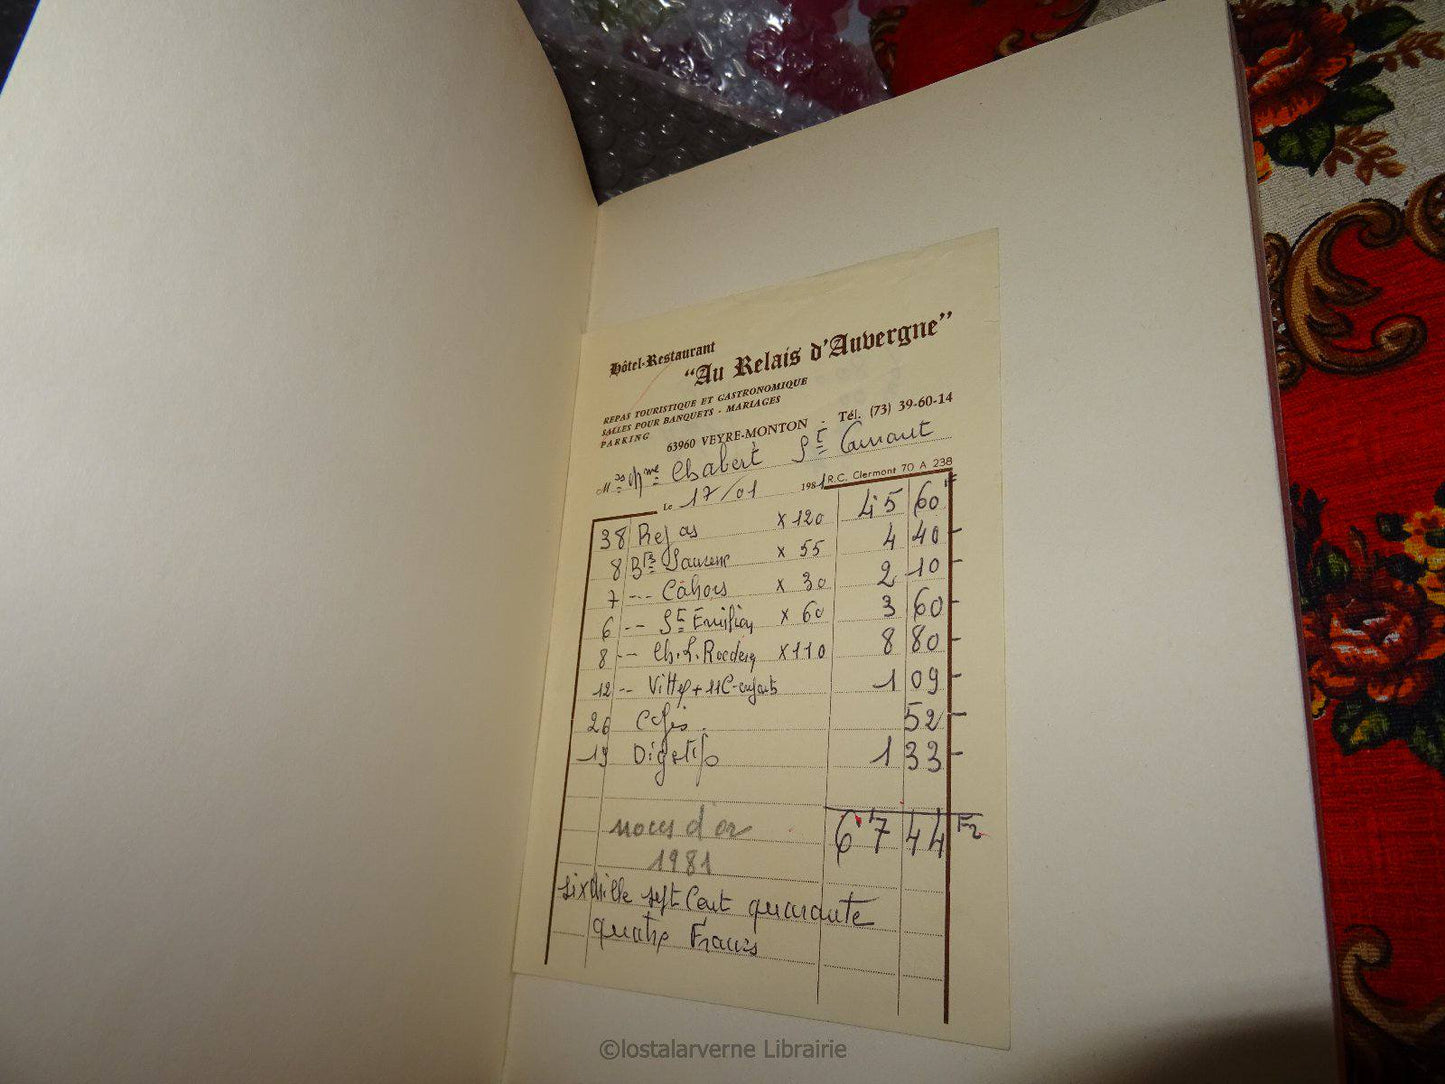 Hôtel-Restaurant
"Au Relais d'Auvergne"
REPAS TOURISTIQUE ET GASTRONOMIQUE
SALLES POUR BANQUETS - MARIAGES
PARKING
63960 VEYRE-MONTON - Tél. (73) 39-60-14
M rs Mme Chabert St
Le 17/01 1981 R.C. Clermont 70 A 238
38 Repas x 120 45 60 F
8 Bles Saumur x 55 4 40 -
7 -- Câhors x 30 2 10 -
6 -- St Emilion x 60 3 60 -
8 -- Ch. L. Roederer x 110 8 80 -
12 -- Vittel + 1 09 -
26 Cafés. 52 -
19 Digestifs 1 33 -
67 44 Fr
noces d'or
1981
six mille sept Cent quarante
quatre Francs
©lostalarverne Librairie